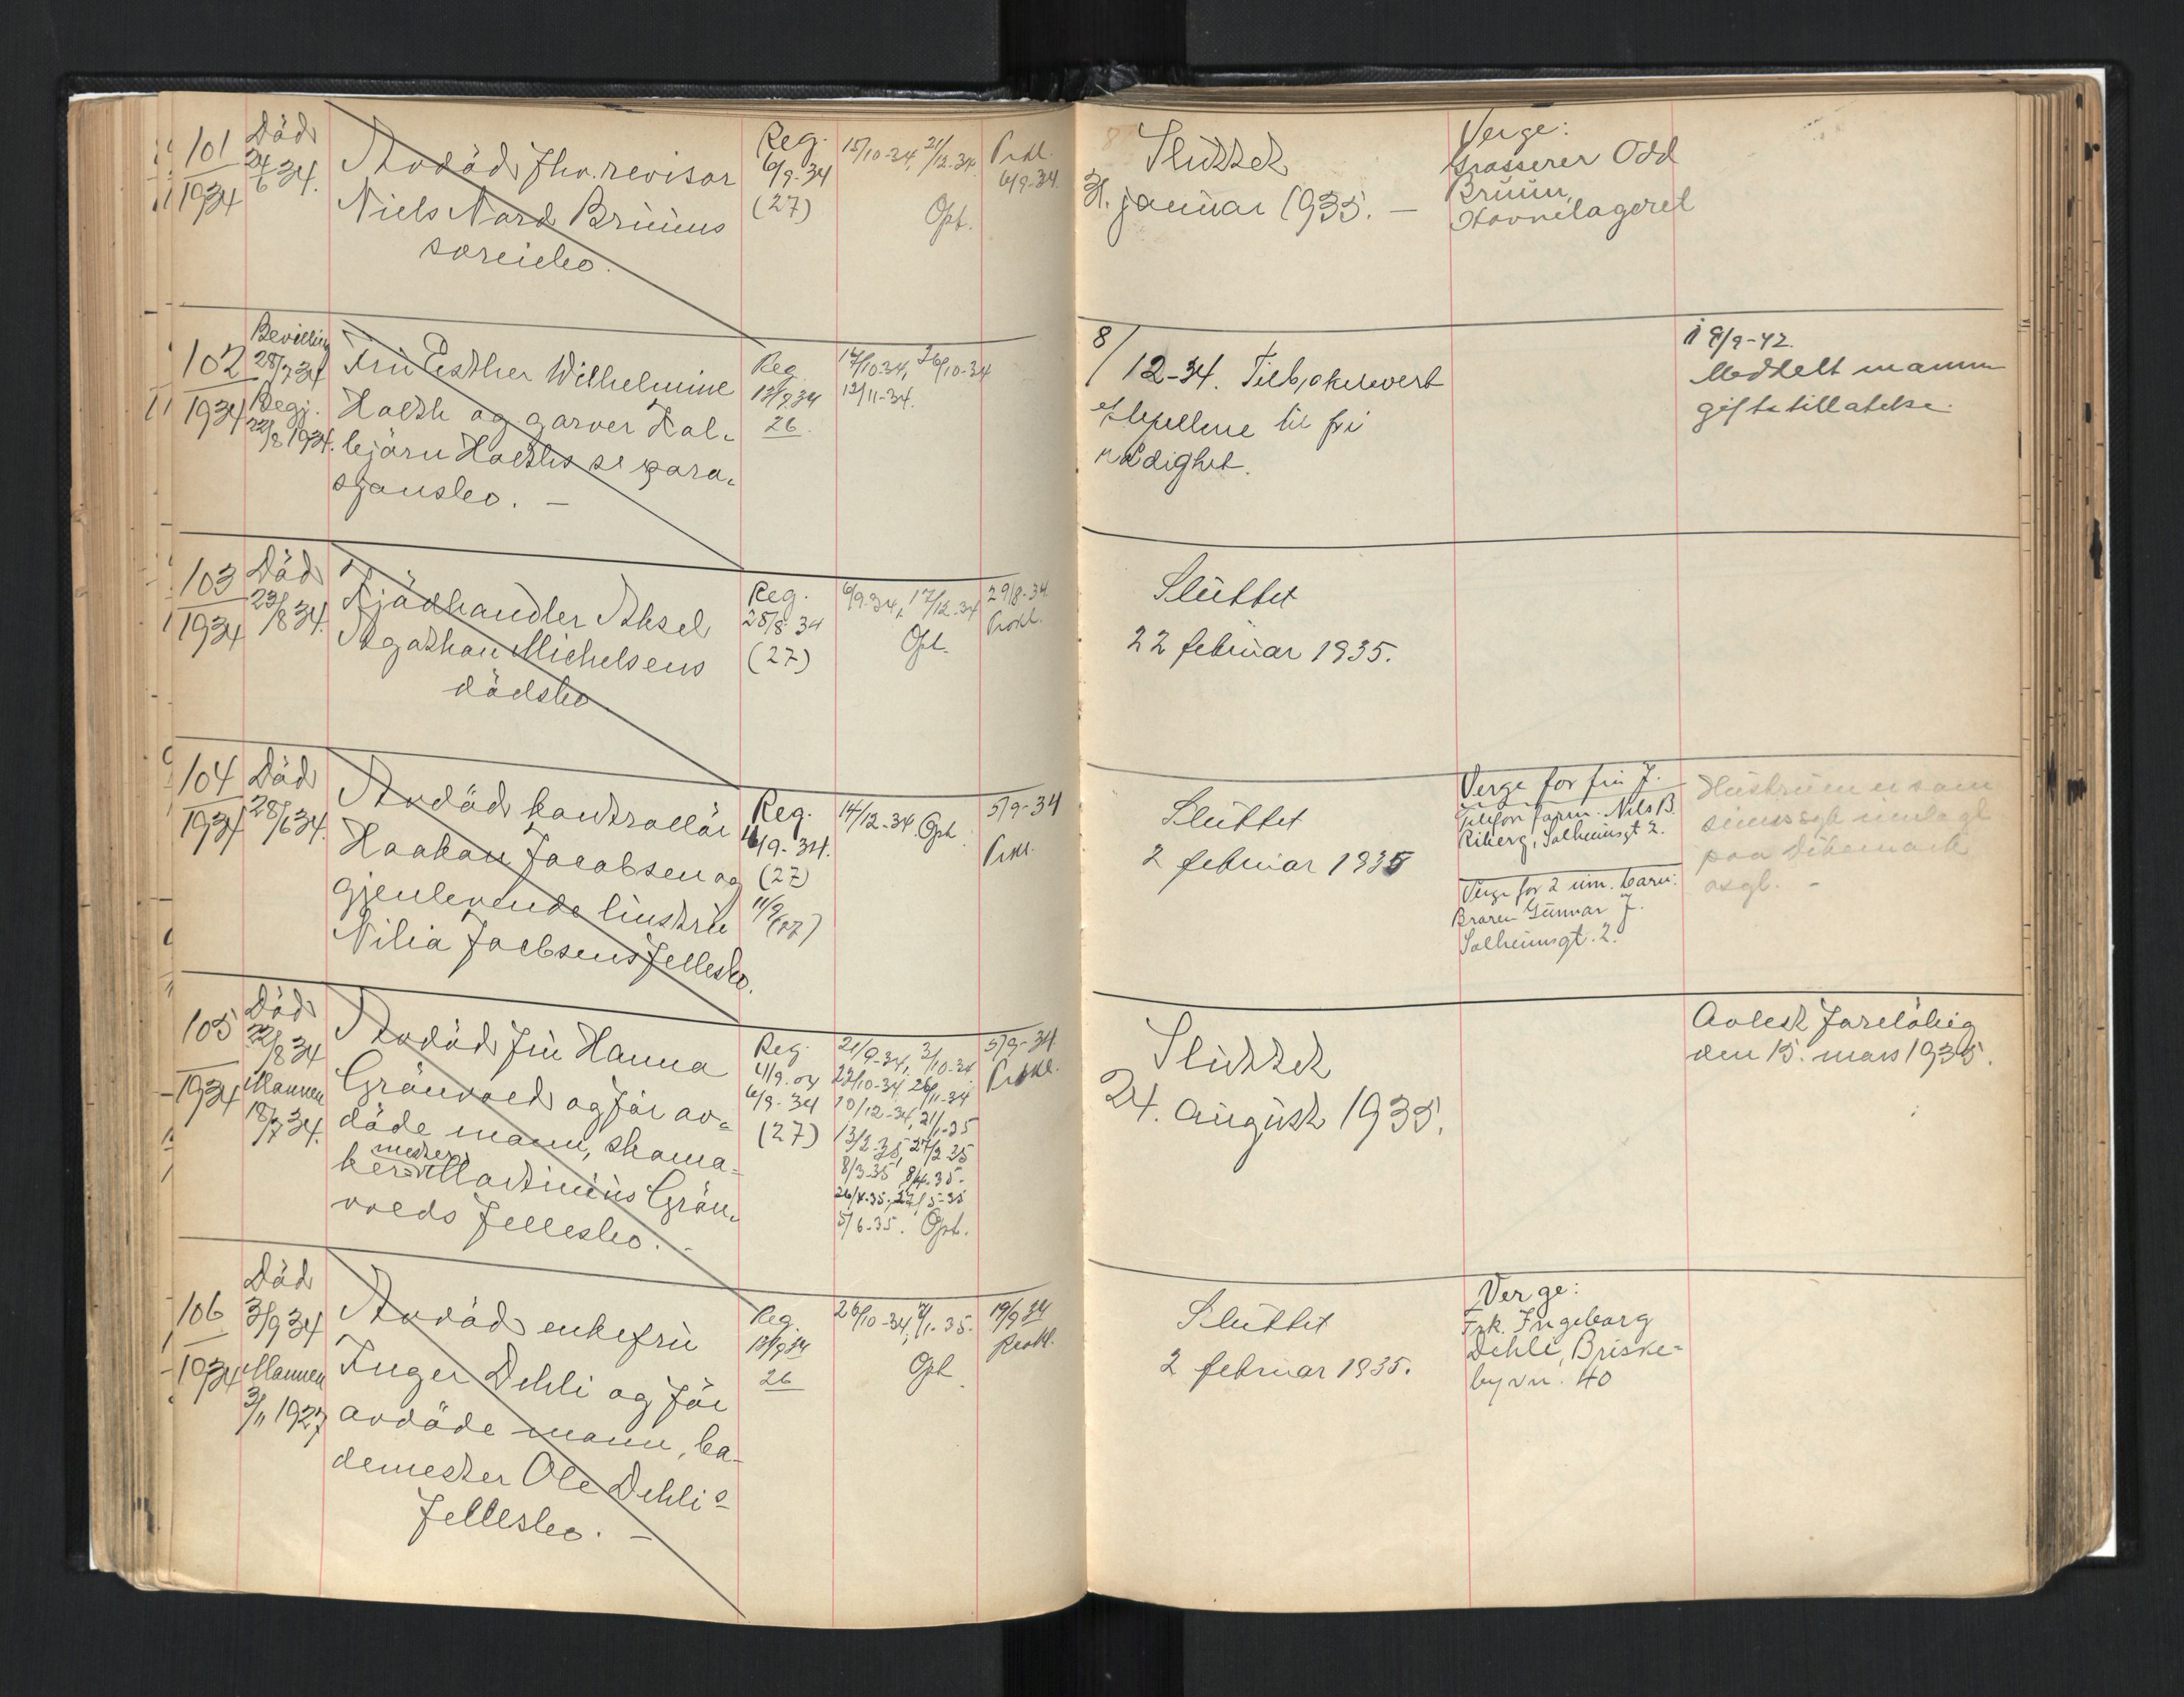 101
1934
Död
24/6 34.
Avdöd fhv. revisor
Niels Nord Bruuns
særeiebo.
Reg.
6/9-34
(27)
15/10-34, 21/12-34.
Opt.
Prkl.
6/9-34.
Sluttet
31. januar 1935. —
Verge:
Grosserer Odd
Bruun,
Havnelageret
102
1934
Bevilling
28/7 34
Begj.
22/8 1934.
Fru Esther Wilhelmine
Holth og garver Kol-
björn Holths separa-
sjonsbo. —
Reg
13/9 34
26.
17/10 34, 26/10-34
12/11-34.
8/12-34. Tilbakelevert
ektefellene til fri
rådighet.
9/9-42.
Meddelt mannen
giftetillatelse.
103
1934
Död
23/8 34.
Kjödhandler Aksel
Agathon Michelsens
dödsbo
Reg.
25/8 34
(27)
6/9-34, 17/12-34
Opt.
29/8-34.
Prokl.
Sluttet
22 februar 1935.
104
1934
Död
28/6 34.
Avdöd kontrollör
Haakon Jacobsen og
gjenlevende hustru
Nilia Jacobsens fellesbo.
Reg.
4/9-34.
(27)
11/9 (27)
14/12-34. Opt.
5/9-34
Prkl.
Sluttet
2 februar 1935
Verge for fru J.
Telefon form. Nils B.
Riberg, Solheimsgt 2.
Verge for 2 um. barn:
Broren Gunnar J.
Solheimsgt. 2.
Hustruen er som
sinnssyk innlagt
paa Dikemark
asyl. -
105
1934
Död
22/8 34
Mannen
18/7 34.
Avdöd fru Hanna
Grönvold og för av-
döde mann, skoma-
kermester Martinius Grön-
volds fellesbo. -
Reg.
4/9. 34
6/9-34
(27)
21/9-34, 3/10-34
22/10-34, 26/11-34
10/12-34, 2/1-35
13/2-35, 27/2 35
8/3-35, 8/4-35.
26/4-35, 22/5-35
5/6-35. Opt.
5/9-34
Prokl.
Sluttet
24. august 1935.
Avlest foreløbig
den 15. mars 1935.
106
1934
Död
3/9 34
Mannen
3/11 1927
Avdöd enkefru
Inger Dehli og för
avdöde mann, ba-
demester Ole Dehlis
fellesbo. —
Reg.
13/9 34
26
26/10-34, 7/1-35.
Opt.
19/9 34
Prokl.
Sluttet
2 februar 1935.
Verge:
Frk. Ingeborg
Dehli, Briske-
byvn. 40